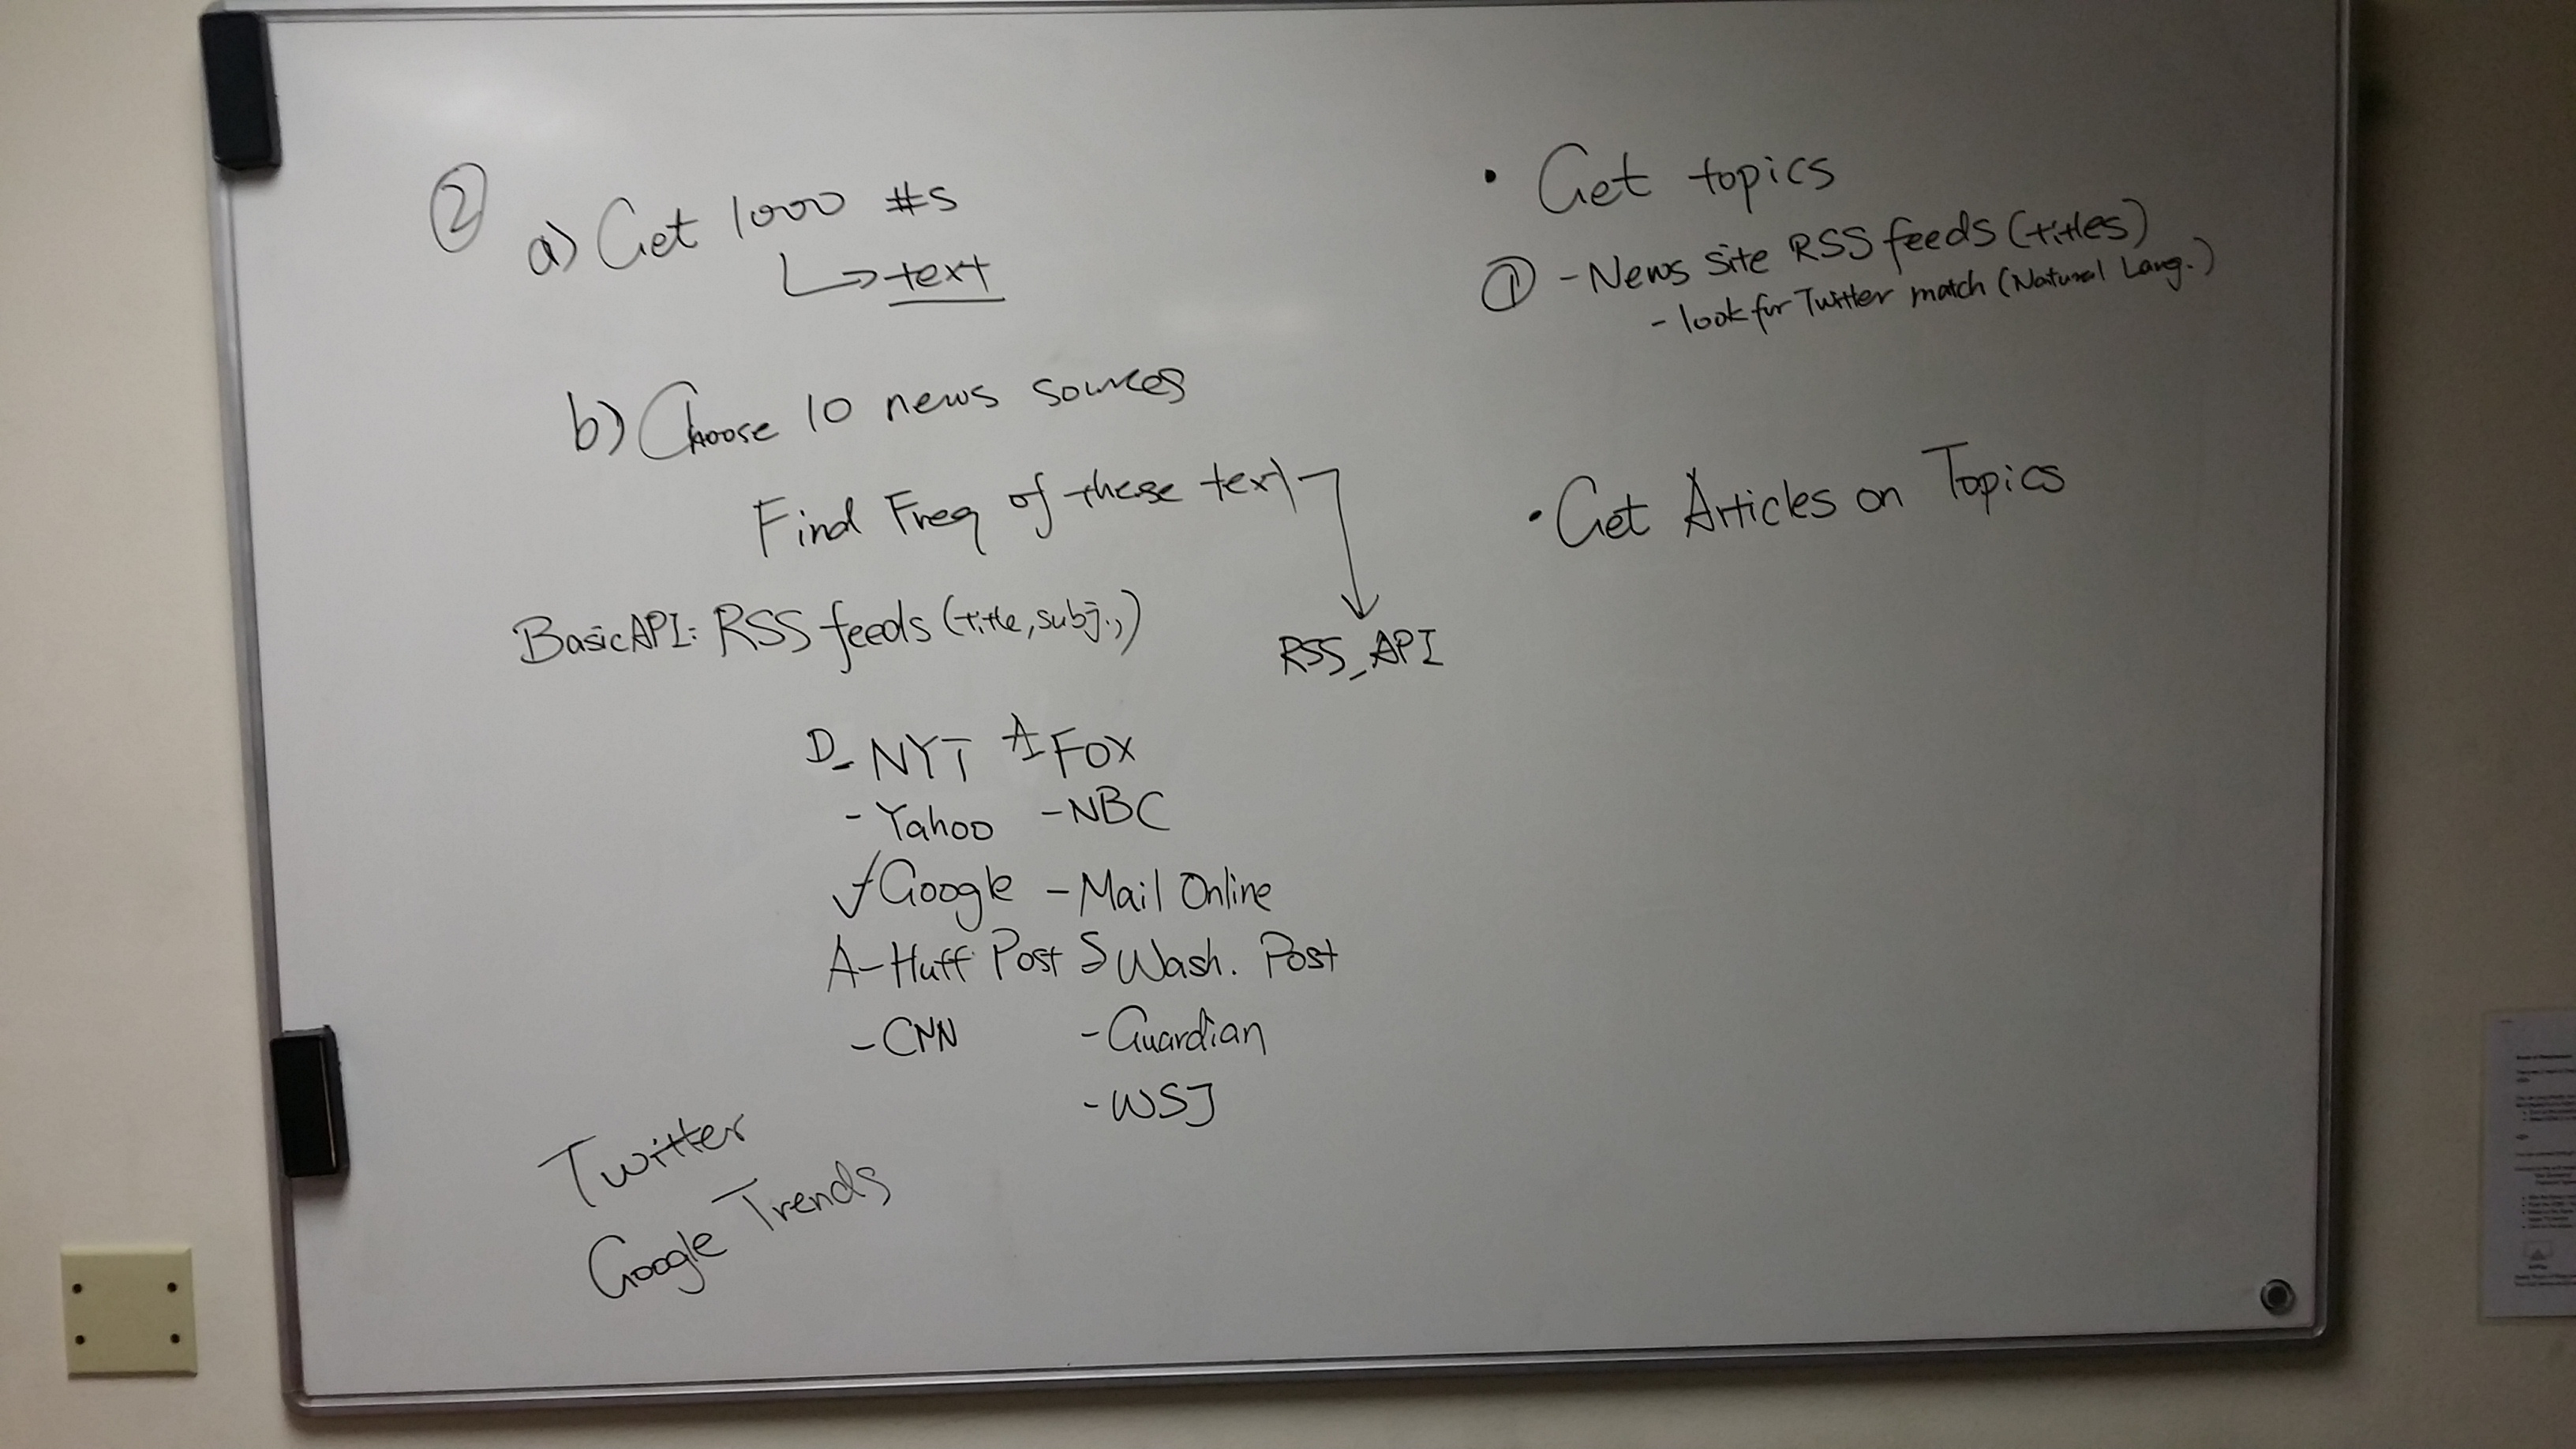 ② a) Get 1000 #s
↳ text
b) Choose 10 news sources
Find Freq of these text
RSS_API
Basic API: RSS feeds (title, subj.,)
D- NYT A- FOX
- Yahoo - NBC
✓ Google - Mail Online
A- Huff Post S Wash. Post
- CNN - Guardian
- WSJ
Twitter
Google Trends
• Get topics
① - News site RSS feeds (titles)
- look for Twitter match (Natural Lang.)
• Get Articles on Topics